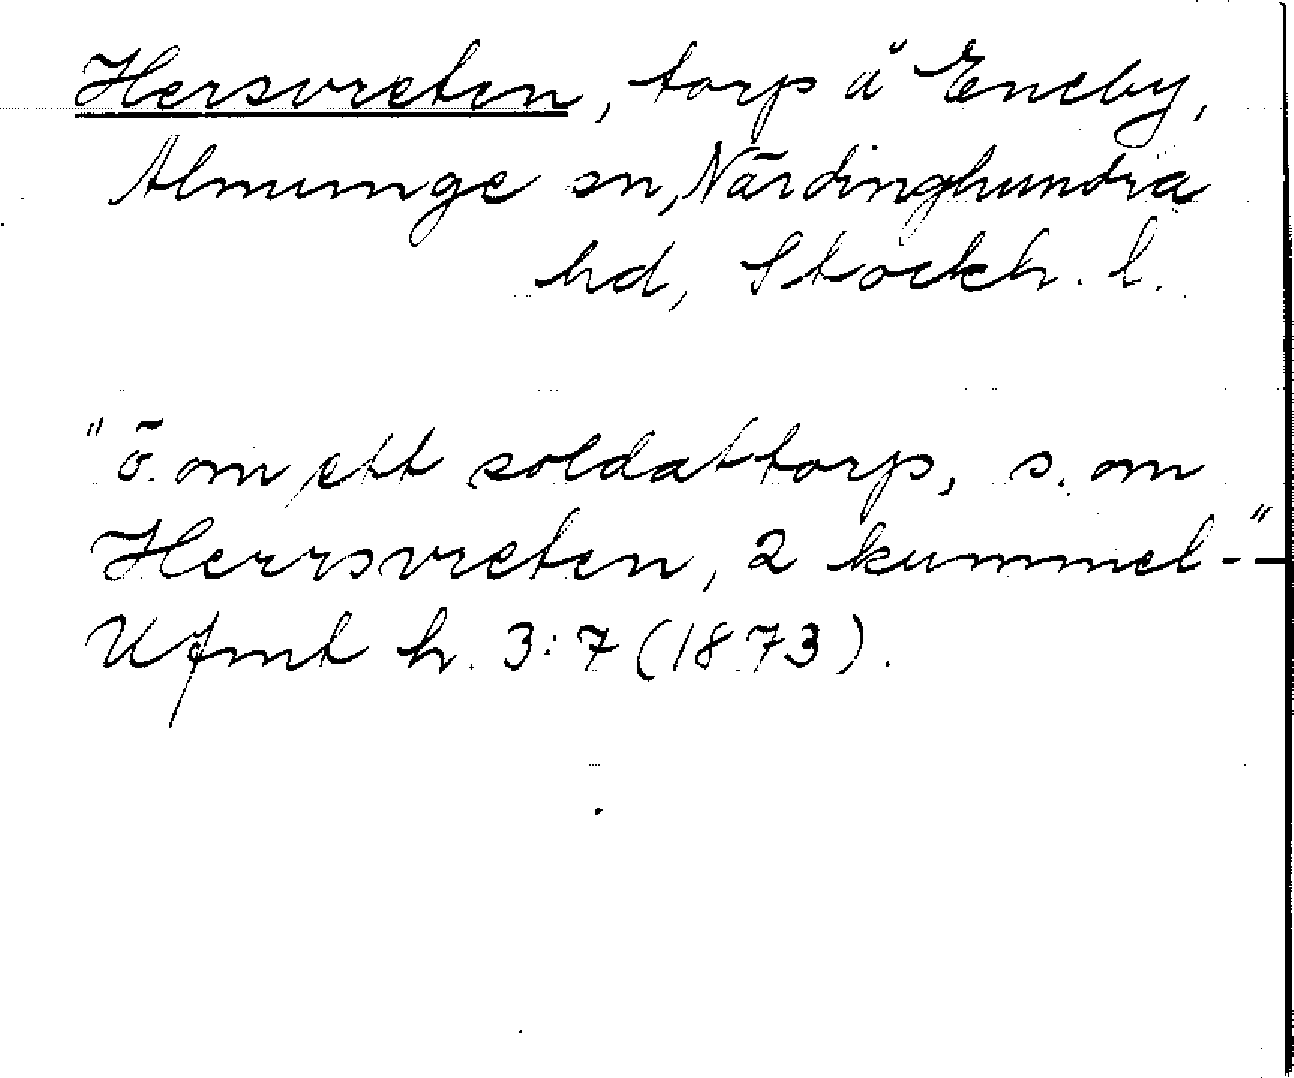 Hersvreten, torp å Eneby,
Almunge sn, Närdinghundra
hd, Stockh. l.
"ö. om ett soldattorp, s. om
Herrsvreten, 2 kummel--"
Ufmt h. 3:7 (1873).